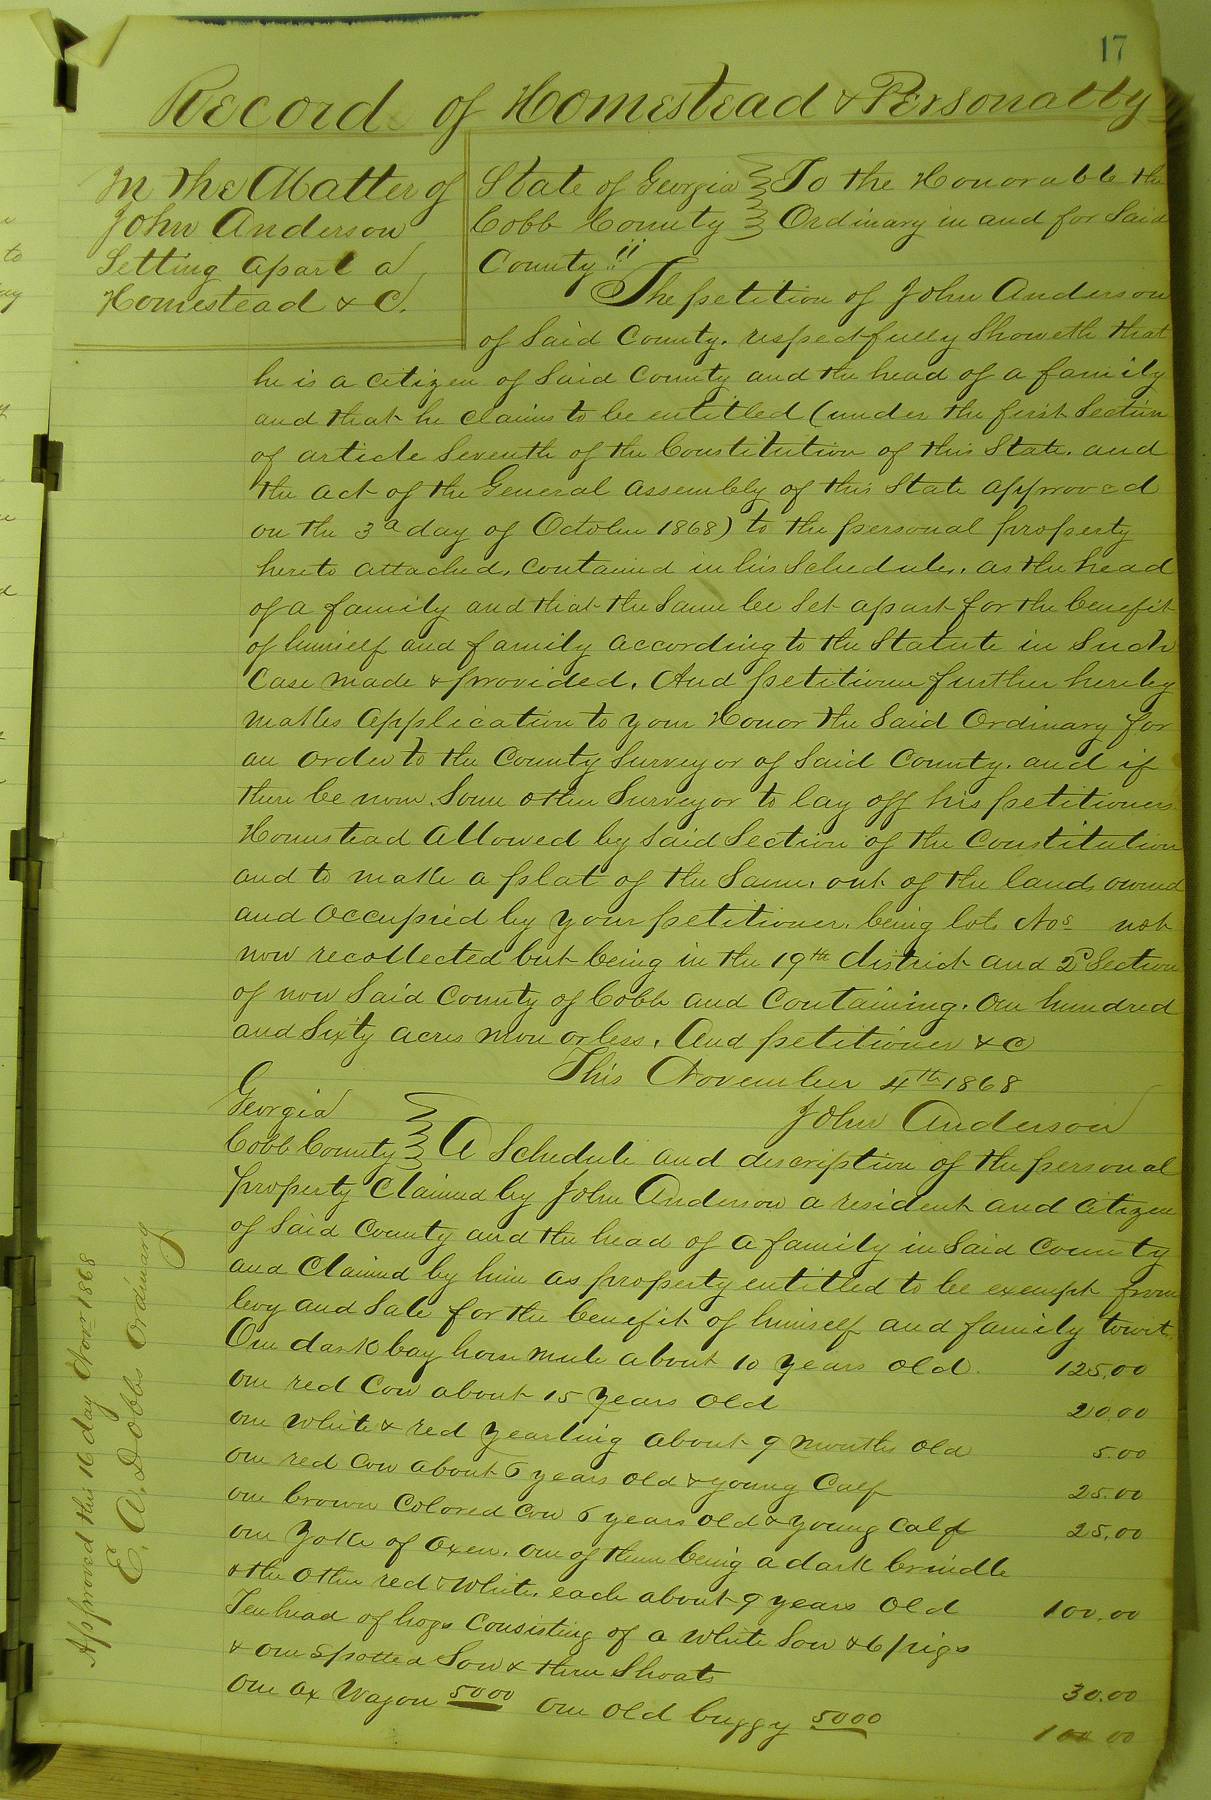 17
Record of Homestead & Personalty
In the Matter of
John Anderson
Setting apart a
Homestead & C.
State of Georgia To the Honorable the
Cobb County Ordinary in and for Said
County "
The petition of John Anderson
of Said County. respectfully Showeth that
he is a citizen of Said County and the head of a family
and that he claims to be entitled (under the first Section
of article Seventh of the Constitution of this State. and
the act of the General assembly of this State approved
on the 3d day of October 1868) to the personal property
hereto attached. contained in his Schedule. as the head
of a family and that the Same be Set apart for the benefit
of himself and family according to the Statute in Such
Case made & provided. And petitioner further hereby
makes Application to your Honor the Said Ordinary for
an order to the County Surveyor of Said County. and if
there be none. Some other Surveyor to lay off his petitioners
Homestead Allowed by Said Section of the Constitution
and to make a plat of the Same. out of the lands owned
and occupied by your petitioner. being lots Nos not
now recollected but being in the 19th district and 2d Section
of now Said County of Cobb and Containing. One hundred
and Sixty acres more or less. And petitioner & C
This November 4th 1868
John Anderson
Georgia
Cobb County A Schedule and description of the personal
property Claimed by John Anderson a resident and Citizen
of Said County and the head of a family in Said County
and Claimed by him as property entitled to be exempt from
levy and Sale for the benefit of himself and family towit
One dark bay horse mule about 10 years old. 125.00
one red Cow about 15 years old 20.00
one white & red yearling about 9 months old 5.00
one red Cow about 6 years old & young Calf 25.00
one brown Colored Cow 6 years old & young Calf 25.00
one Yoke of oxen. one of them being a dark brindle
& the other red & white. each about 9 years old 100.00
Ten head of hogs Consisting of a white Sow & 6 pigs
& one Spotted Sow & three Shoats 30.00
One ox Wagon 5000 one old buggy 5000 100 00
Approved this 16 day Novr 1868
E. A. Dobbs Ordinary